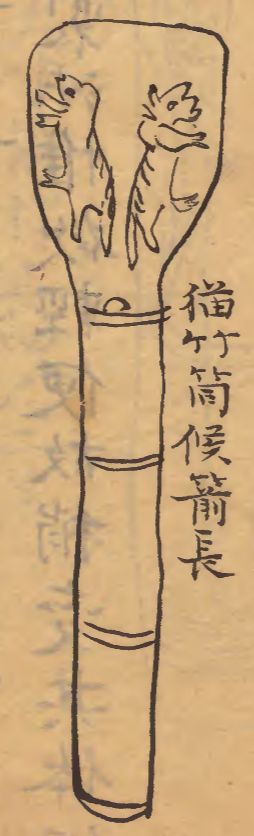 猫竹筒候箭長